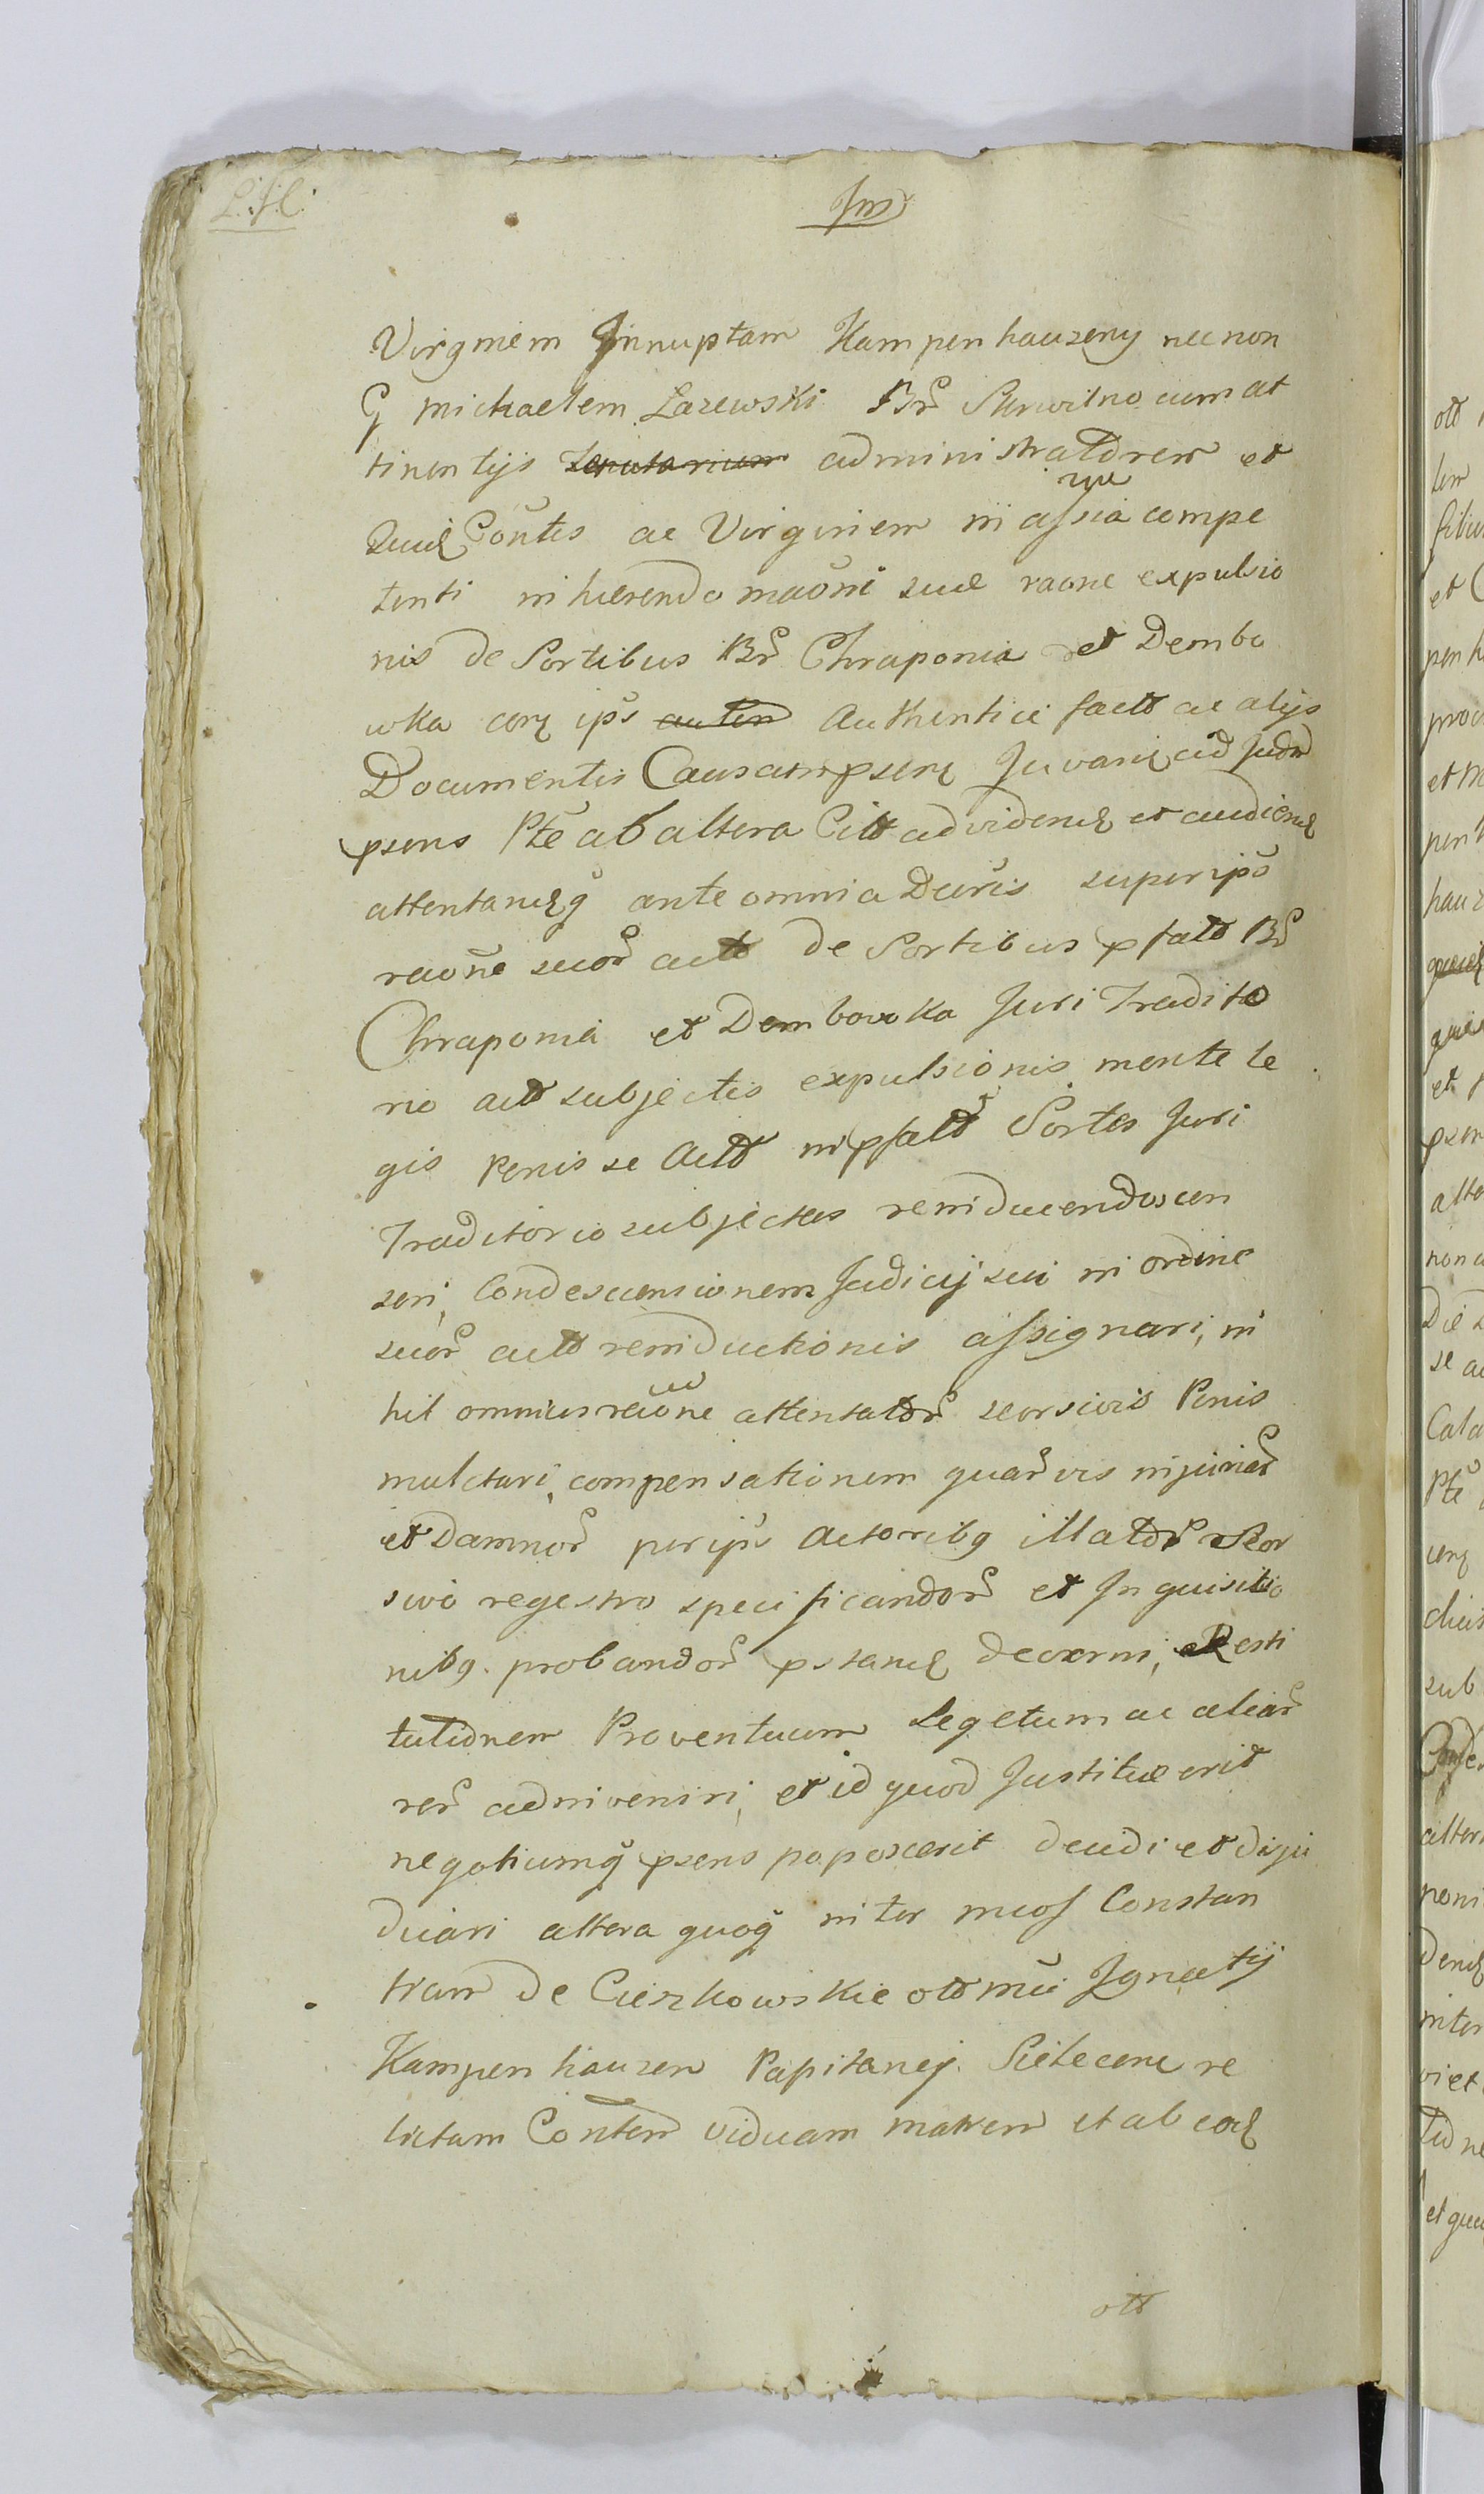 L.fl.
Jm
Virginem Innuptam Kampenhauzeny necnon
G Michaelem Lazewski Br̃ Skrwilno cum at
tinentijs Tenutarium administratorem et
Quidẽ Cõntes ac Virginem in assia compe
tenti inhærendo maõni suæ raõne expulsio
nis de Sortibus Br̃ Chraponia et Dembo
wka corẽ ips̃ autem Authentice fact ac alijs
Documentis Causam pserẽ Juvarẽ ad Judm
psens Ptẽ ab altera Citt ad videnẽ et audienẽ
attentanẽq̃ ante omnia Decrẽs super ips̃
raõne suor̃ act de Sortibus pfatt Br̃
Chraponia et Dembowka Juri Tradito
rio act subjectis expulsionis mente le
gis Penis se Act in pfatt Sortes Juri
Traditorio subjectas reinducendos cen
seri, Condescensionem Judicij sui in ordine
suor̃ act reinductionis assignari, ni
hil ominus raõne attentator̃ seorsivis Penis
mulctari, compensationem quar̃vis injuriar̃
et Damnor̃ per ips̃ Actoribq illator̃ Seor
sivo regestro specificandor̃ et Inquisitio
nibq. probandor̃ pstanẽ decerni, Resti
tutionem Proventuum Segetum ac aliar̃
rer̃ adinveniri, et id quod Justitiæ erit
negotiumq̃ psens poposcerit decidi et diju
dicari altera quoq̃ inter mcos Constan
tiam de Cieszkowskie ott mci Ignatij
Kampenhauzen Capitanej Sielecen re
lictam Cõntem viduam matrem et ab eadẽ
ott